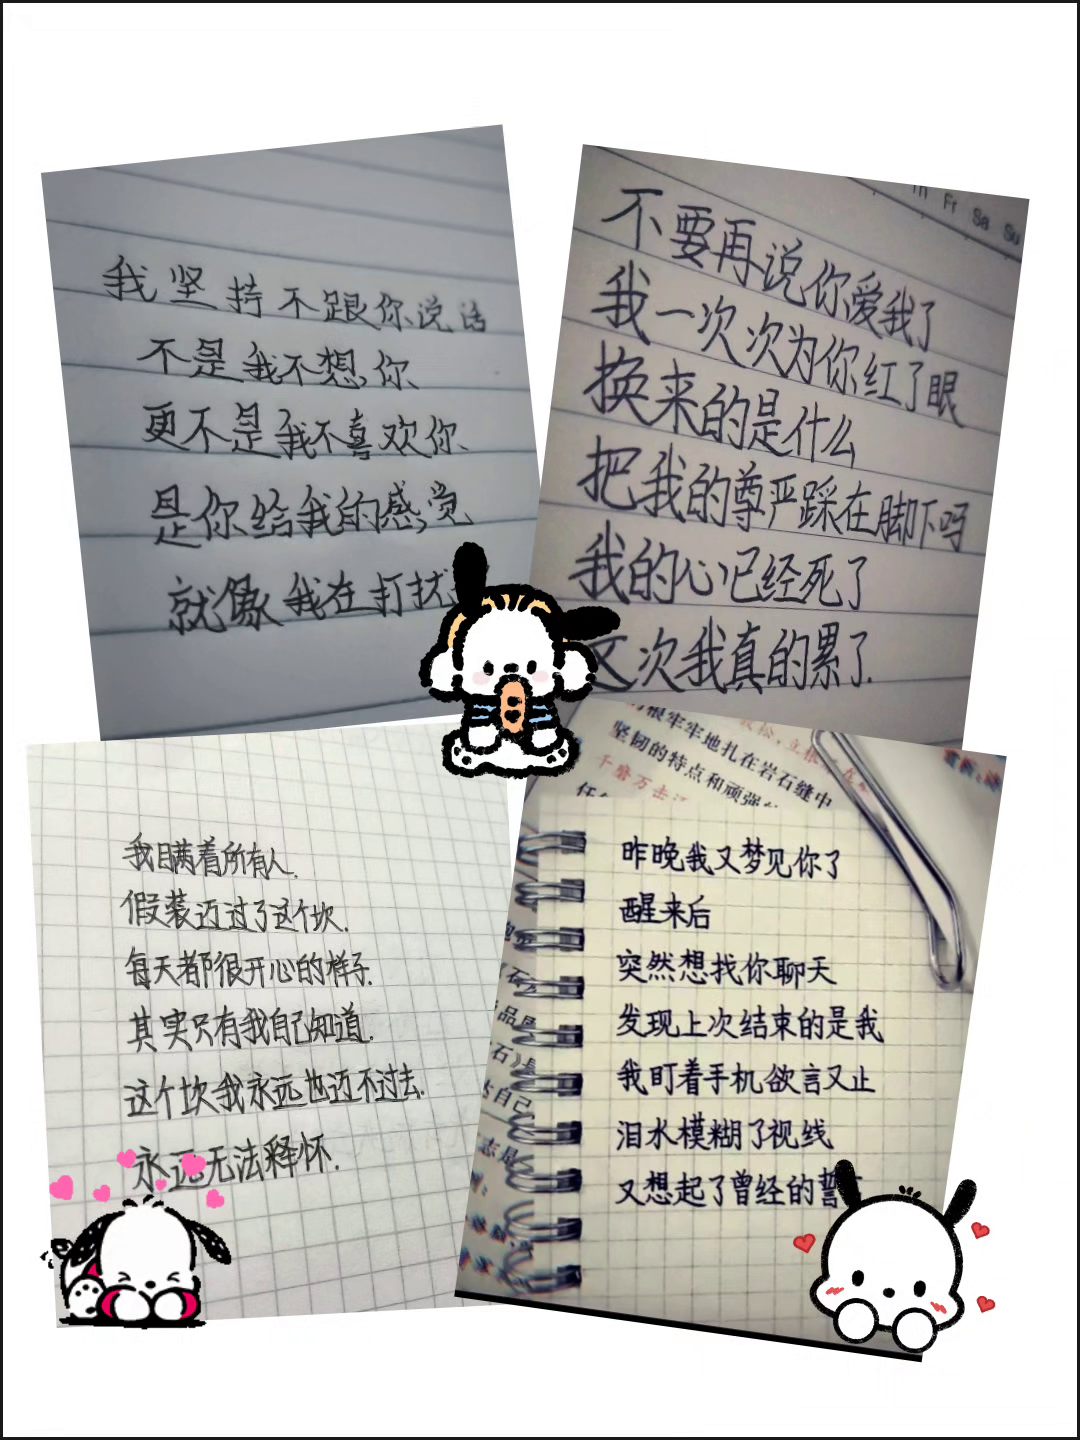 我坚持不跟你说话
不是我不想你
更不是我不喜欢你
是你给我的感觉
就像我在打扰
Fr Sa Su
不要再说你爱我了
我一次次为你红了眼
换来的是什么
把我的尊严踩在脚下吗
我的心已经死了
这次我真的累了.
我瞒着所有人.
假装迈过了这个坎.
每天都很开心的样子.
其实只有我自己知道.
这个坎我永远也迈不过去.
永远无法释怀.
根牢牢地扎在岩石缝中
坚韧的特点和顽强
千磨万击
任
昨晚我又梦见你了
醒来后
突然想找你聊天
发现上次结束的是我
我盯着手机欲言又止
泪水模糊了视线
又想起了曾经的誓
石
品
石)是
自己
志是